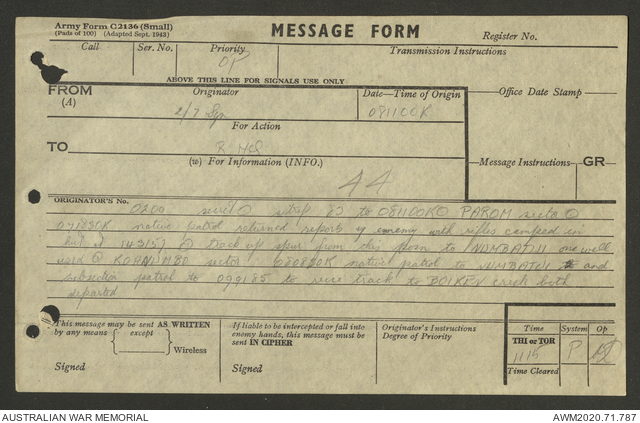 Army Form C2136 (Small)
(Pads of 100) (Adapted Sept. 1943)
MESSAGE FORM
Register No.
Call
Ser. No.
Priority
OP
Transmission Instructions
ABOVE THIS LINE FOR SIGNALS USE ONLY
FROM
(A)
Originator
2/7
Date—Time of Origin
081100K
Office Date Stamp
For Action
TO
HQ
(w) For Information (INFO.)
44
Message Instructions
GR
ORIGINATOR'S No.
O200 secret to 081100K PAROM sector
071830K native patrol returned reports enemy with rifles camped in
hut at 143157 track up spur from this to NUMBATUI one well
used KOANUMBO sector 080830K native patrol to NUMBATUI and
subsection patrol to 099185 to track to BOIKEN creek both
departed
This message may be sent AS WRITTEN
by any means
except
Wireless
Signed
If liable to be intercepted or fall into
enemy hands, this message must be
sent IN CIPHER
Signed
Originator's Instructions
Degree of Priority
Time
System
Op
THI or TOR
1115
P
Time Cleared
AUSTRALIAN WAR MEMORIAL
AWM2020.71.787